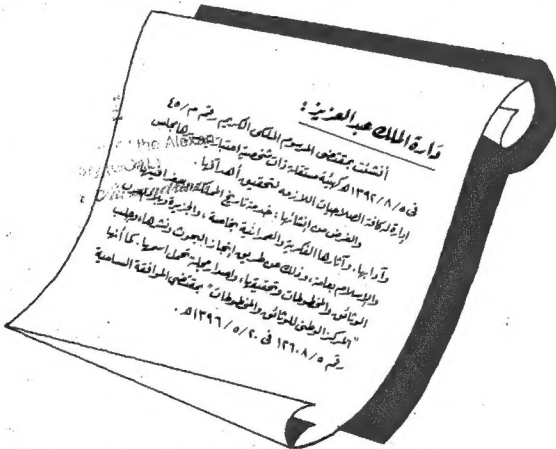 دارة الملك عبد العزيز :
أنشئت بمقتضى المرسوم الملكي الكريم رقم م/٤٥
في ١٣٩٢/٨/٥ هـ كهيئة مستقلة ذات شخصية اعتبارية مجلس
إدارة له كافة الصلاحيات اللازمة لتحقيق أهدافها .
والغرض من إنشائها : خدمة تاريخ المملكة وجغرافيتها
وآدابها ، وآثارها الفكرية والعمرانية بخاصة ، والجزيرة وبلاد العرب
والإسلام بعامة ، وذلك عن طريق إنجاز البحوث ونشرها ، وجلب
الوثائق والمخطوطات وتحقيقها ، وإصدار مجلة تحمل اسمها . كما أنها
"المركز الوطني للوثائق والمخطوطات" بمقتضى الموافقة السامية
رقم ١٢٦٠٨/٥ في ١٣٩٦/٥/٢٠ هـ .